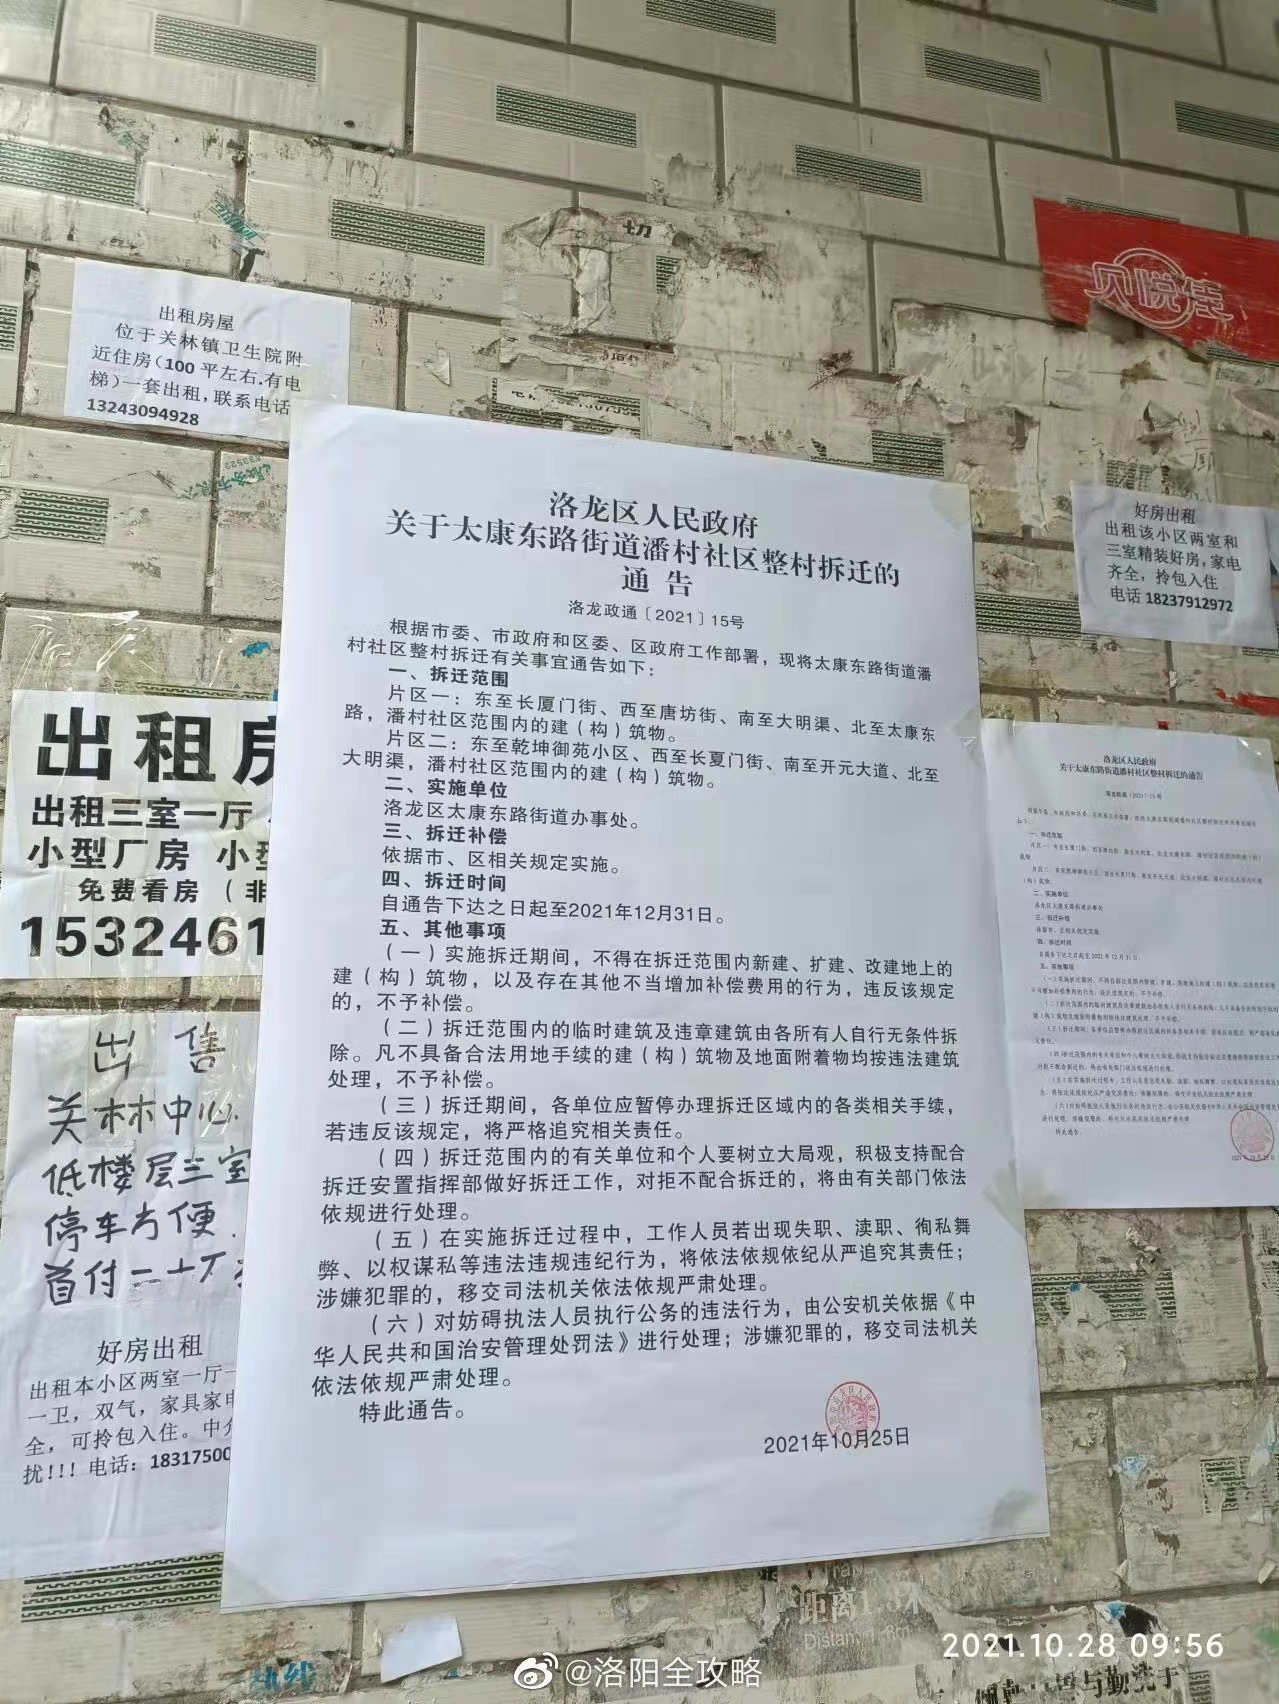 切
贝悦佳
出租房屋
位于关林镇卫生院附
近住房(100 平左右.有电
梯)一套出租,联系电话
13243094928
好房出租
出租该小区两室和
三室精装好房,家电
齐全,拎包入住
电话 18237912972
洛龙区人民政府
关于太康东路街道潘村社区整村拆迁的
通 告
洛龙政通〔2021〕15号
根据市委、市政府和区委、区政府工作部署，现将太康东路街道潘
村社区整村拆迁有关事宜通告如下：
一、拆迁范围
片区一：东至长厦门街、西至唐坊街、南至大明渠、北至太康东
路，潘村社区范围内的建（构）筑物。
片区二：东至乾坤御苑小区、西至长夏门街、南至开元大道、北至
大明渠，潘村社区范围内的建（构）筑物。
二、实施单位
洛龙区太康东路街道办事处。
三、拆迁补偿
依据市、区相关规定实施。
四、拆迁时间
自通告下达之日起至2021年12月31日。
五、其他事项
（一）实施拆迁期间，不得在拆迁范围内新建、扩建、改建地上的
建（构）筑物，以及存在其他不当增加补偿费用的行为，违反该规定
的，不予补偿。
（二）拆迁范围内的临时建筑及违章建筑由各所有人自行无条件拆
除。凡不具备合法用地手续的建（构）筑物及地面附着物均按违法建筑
处理，不予补偿。
（三）拆迁期间，各单位应暂停办理拆迁区域内的各类相关手续，
若违反该规定，将严格追究相关责任。
（四）拆迁范围内的有关单位和个人要树立大局观，积极支持配合
拆迁安置指挥部做好拆迁工作，对拒不配合拆迁的，将由有关部门依法
依规进行处理。
（五）在实施拆迁过程中，工作人员若出现失职、渎职、徇私舞
弊、以权谋私等违法违规违纪行为，将依法依规依纪从严追究其责任；
涉嫌犯罪的，移交司法机关依法依规严肃处理。
（六）对妨碍执法人员执行公务的违法行为，由公安机关依据《中
华人民共和国治安管理处罚法》进行处理；涉嫌犯罪的，移交司法机关
依法依规严肃处理。
特此通告。
2021年10月25日
出租房
出租三室一厅
小型厂房 小型
免费看房（非
1532461
出售
关林中心
低楼层三室
停车方便.
首付二十万
好房出租
出租本小区两室一厅一
一卫，双气，家具家电
全，可拎包入住。中介
扰!!! 电话：18317500
洛龙区人民政府
关于太康东路街道潘村社区整村拆迁的通告
洛龙政通〔2021〕15号
一、拆迁范围
二、实施单位
洛龙区太康东路街道办事处
三、拆迁补偿
依据市、区相关规定实施。
四、拆迁时间
自通告下达之日起至2021年12月31日。
五、其他事项
特此通告。
距离1.3米
2021.10.28 09:56
@洛阳全攻略